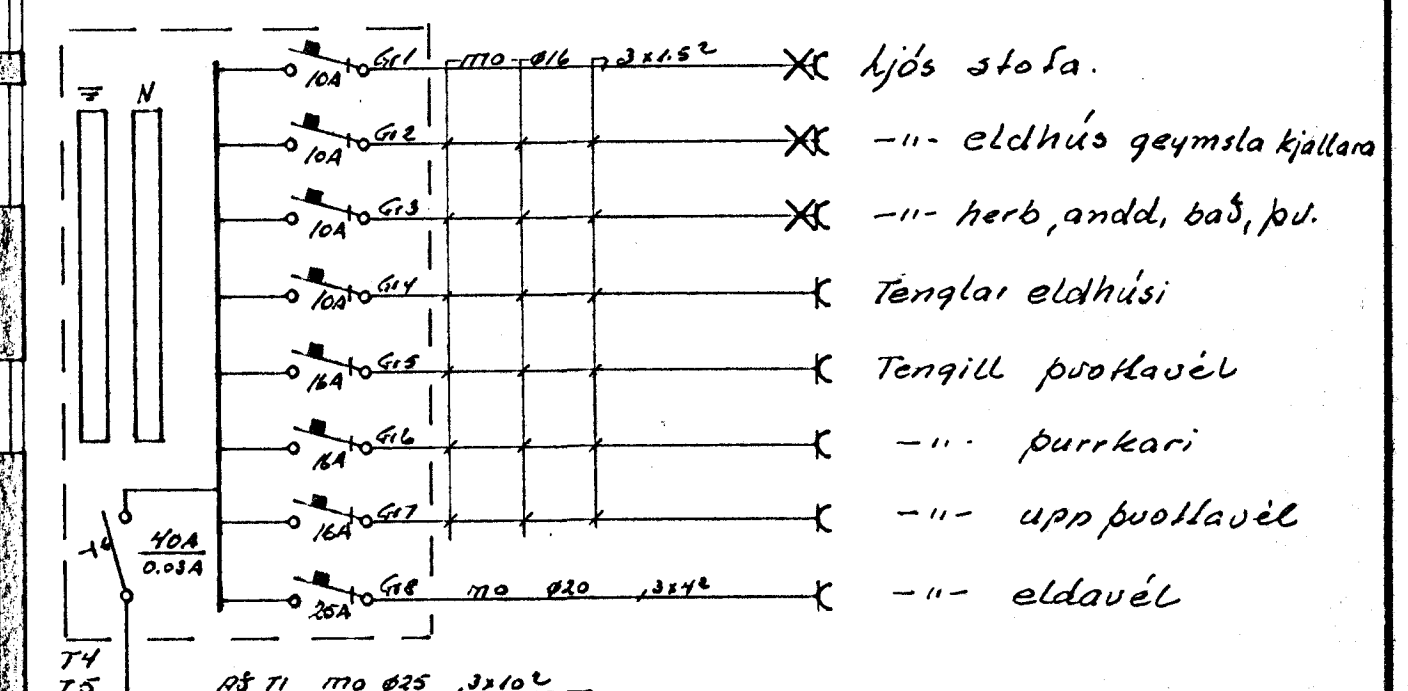 Gr1 mo ø16 3x1.5² ljós stofa.
10A
N
Gr2 -"- eldhús geymsla kjallara
10A
Gr3 -"- herb, andd, bað, þv.
10A
Gr4 Tenglar eldhúsi
10A
Gr5 Tengill þvottavél
16A
Gr6 -"- þurrkari
16A
Gr7 -"- upp þvottavél
16A
40A
0.03A
Gr8 mo ø20 ,3x4² -"- eldavél
25A
T4
T5 Að T1 mo ø25 ,3x10²